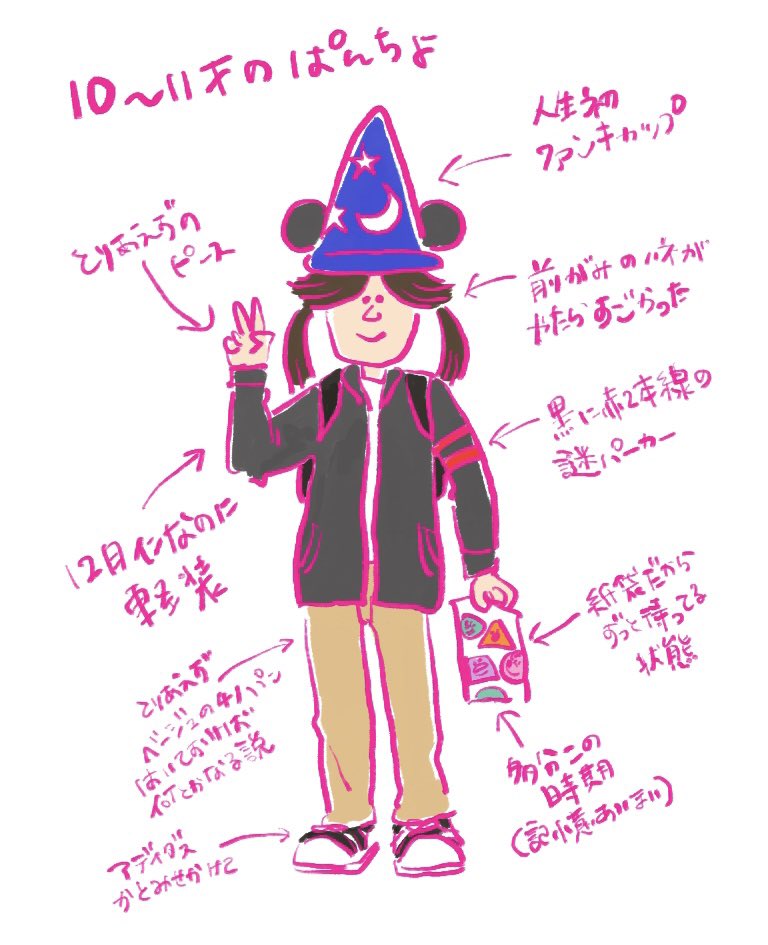 10〜11才のぱんちょ
人生初
ファンキャップ
とりあえずの
ピース
前がみのハネが
やたらすごかった
黒に赤2本線の
謎パーカー
12月なのに
軽装
紙袋だから
ずっと持ってる
状態
とりあえず
ベージュのチノパン
はいておけば
何とかなる説
多分この
時期
(記憶あいまい)
アディダス
かとみせかけて